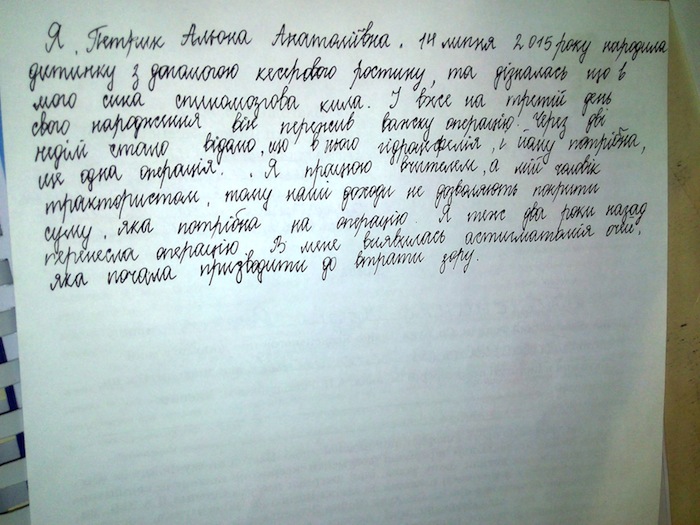 Я, Петрик Альона Анатоліївна. 14 липня 2015 року народила
дитинку з допомогою кесарового ростину, та дізналась що в
мого сина спиномозгова кила. І вже на третій день
свого народження він пережив важку операцію. Через дві
неділі стало відамо, що в нього гідроцефлія, і йому потрібна,
ще одна операція. Я працюю вчителем, а мій чоловік
трактористом, тому наші доходи не дозволяють покрити
суму, яка потрібна на операцію. Я теж два роки назад
перенесла операцію. В мене виявилась астигматамія очей,
яка почала призводити до втрати зору.